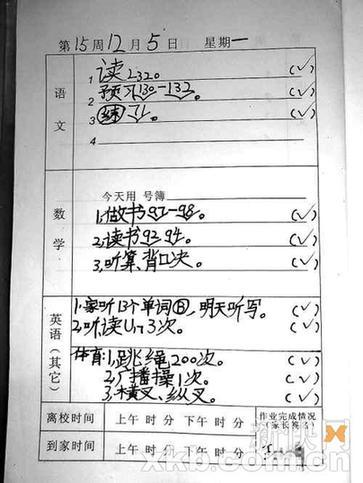 第15周12月5日 星期一
语文
1 读232。
2 预习130-132。
3 练71。
4
今天用 号簿
数学
1.做书97-98。
2.读书93 94。
3.听算、背口决。
英语(其它)
1.家听13个单词B,明天听写。
2.听读U 3次。
体育:1.跳绳200次。
2.广播操1次。
3.横叉、纵叉。
离校时间 上午 时 分 下午 时 分
到家时间 上午 时 分 下午 时 分
作业完成情况
(家长签名)
新快网
xkb.com.cn